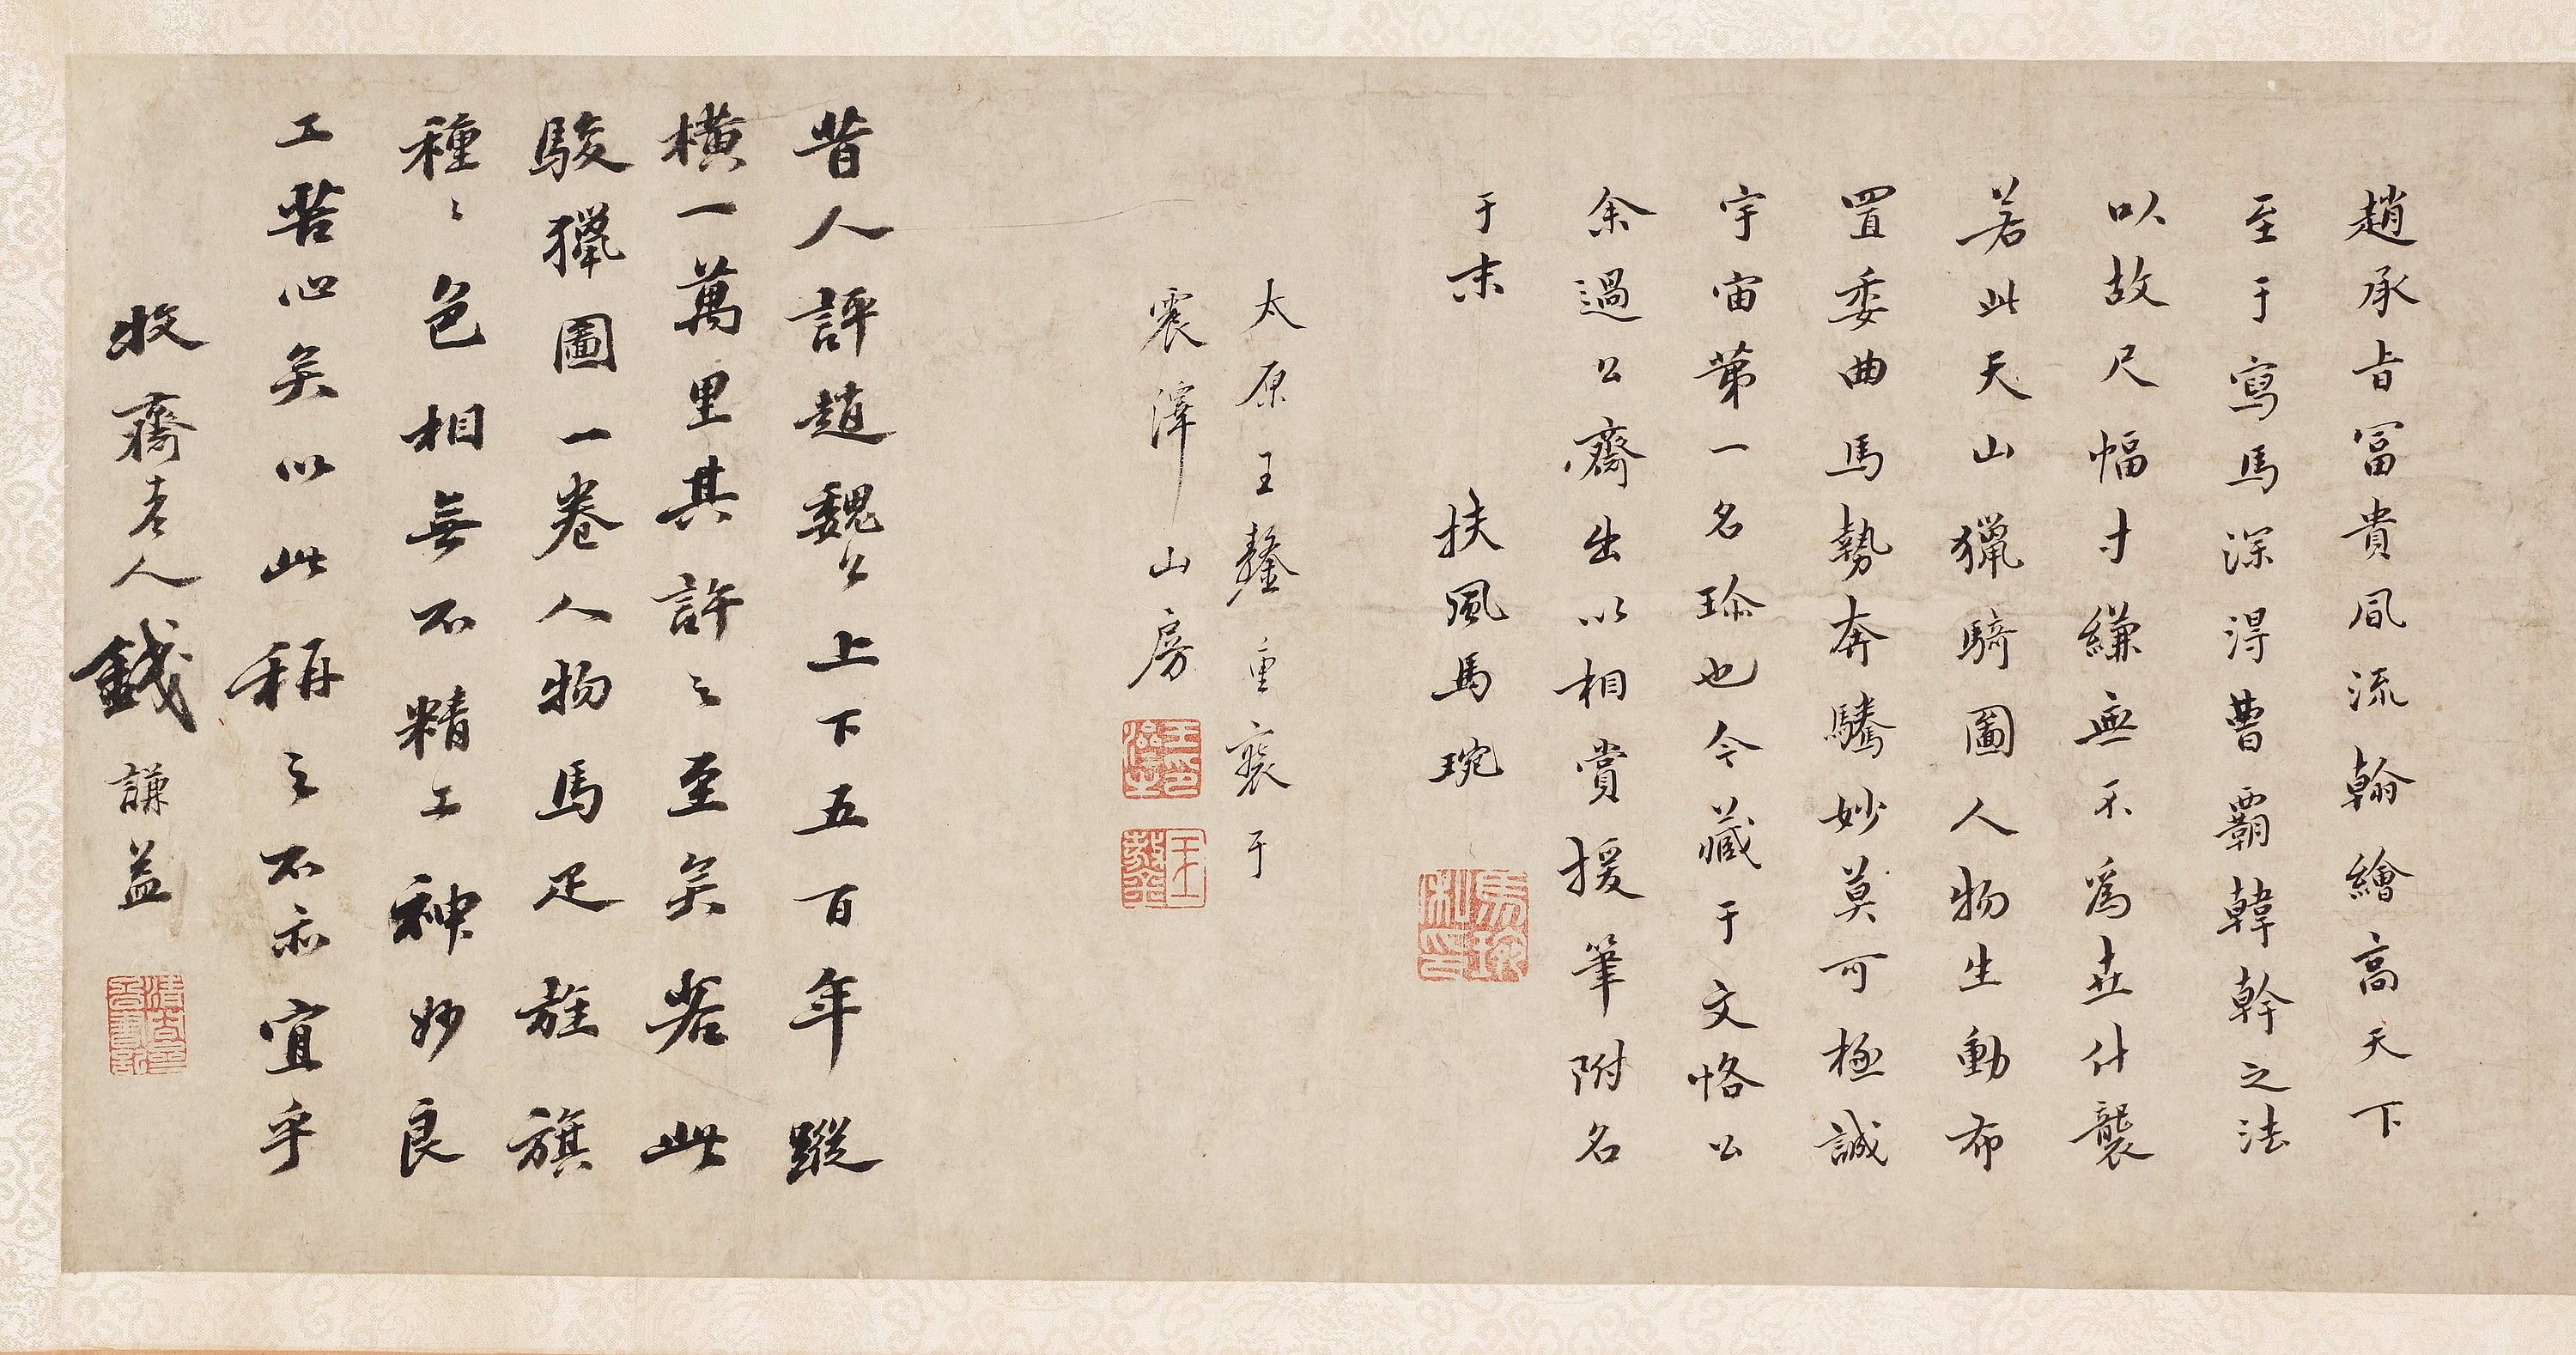 趙承旨冨貴風流翰繪高天下
至于寫馬深得曹霸韓幹之法
以故尺幅寸縑無不為世什襲
若此天山獵騎圖人物生動布
置委曲馬勢奔騰妙莫可極誠
宇宙苐一名珎也今藏于文恪公
余過公齋出以相賞援筆附名
于末
扶風馬琬
馬琬私印
太原王鏊重裝于
震澤山房
昔人評趙魏公上下五百年蹤
橫一萬里其許之至矣若此
駿獵圖一卷人物馬疋旌旗
種〻色相無不精工神妙良
工苦心矣以此稱之不亦宜乎
牧齋老人錢謙益